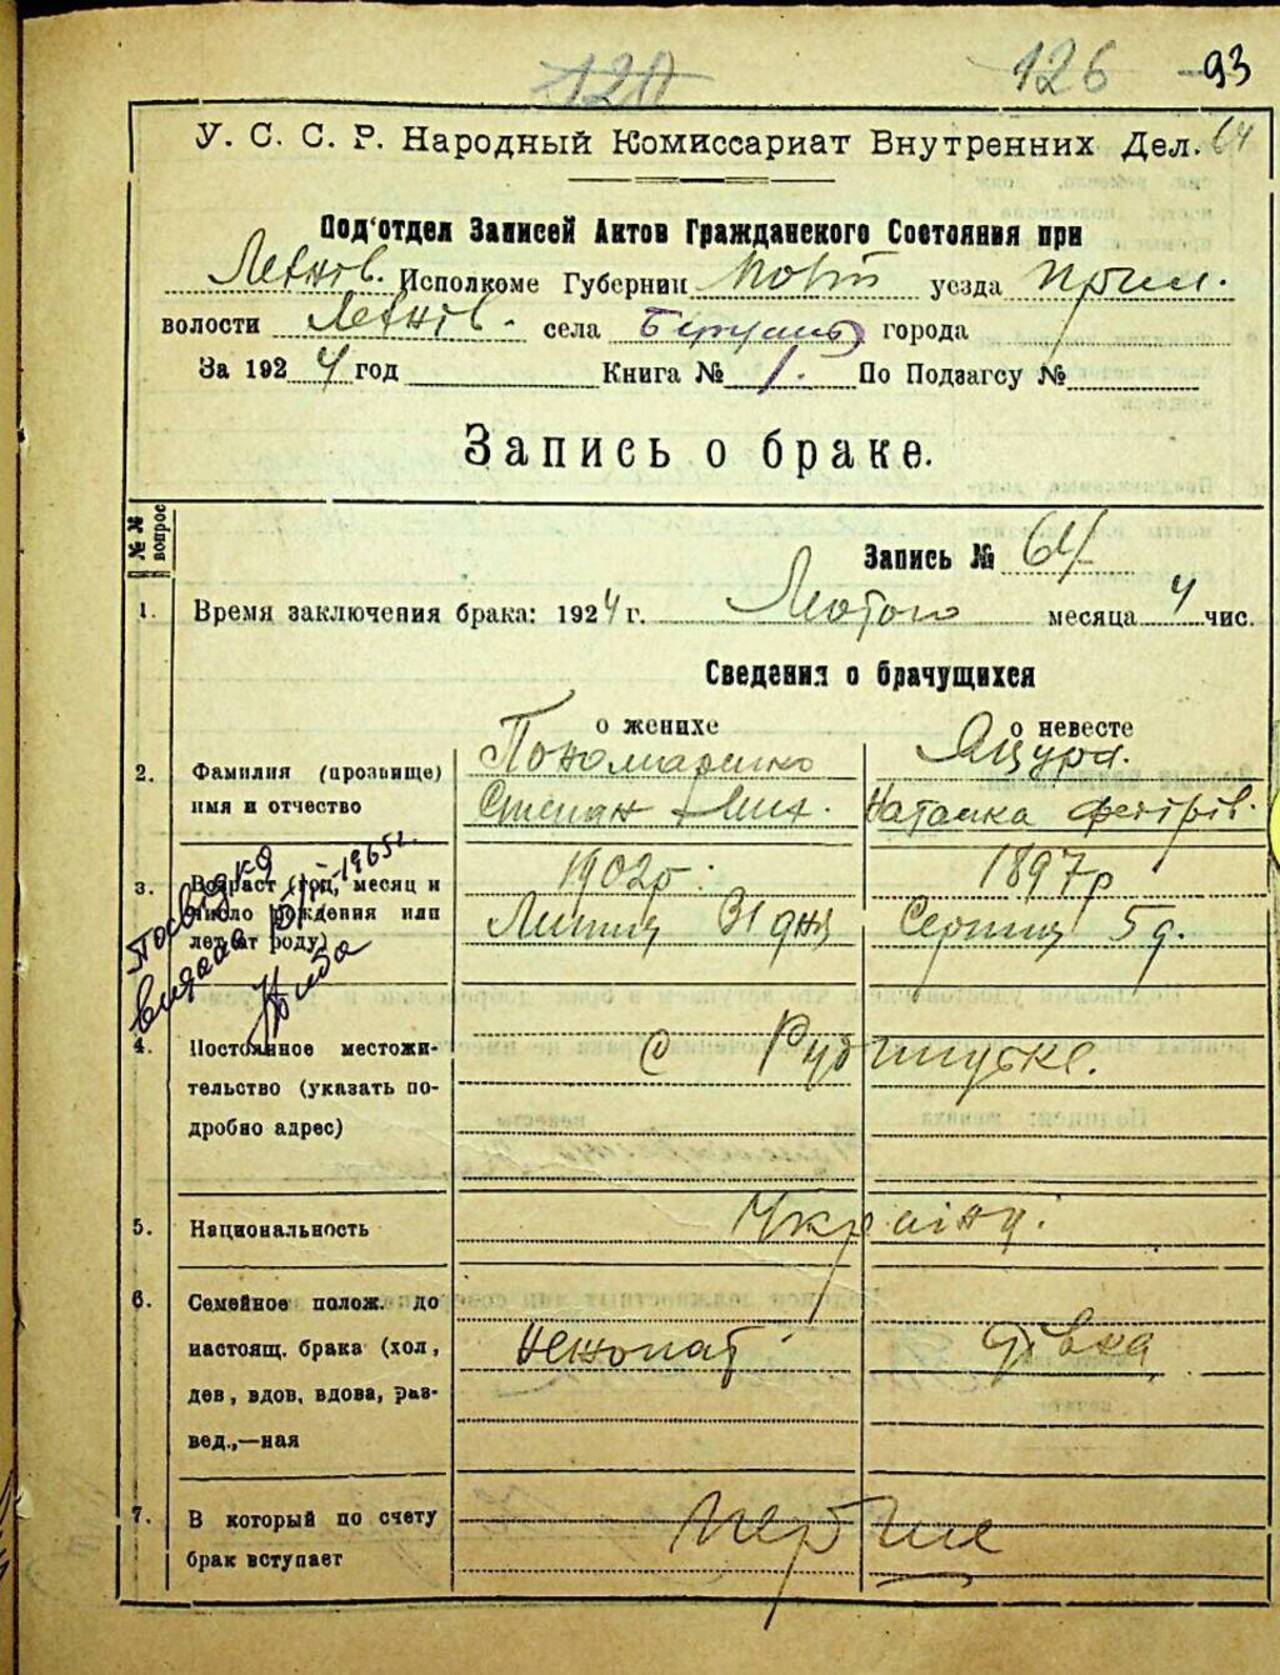 120 126 93
У. С. С. Р. Народный Комиссариат Внутренних Дел. 64
Под'отдел Записей Актов Гражданского Состояния при
Исполкоме Губернии Полт уезда Прил.
волости села города
За 1924 год Книга № 1. По Подзагсу №
Запись о браке.
№№ вопрос
Запись № 64
1. Время заключения брака: 1924 г. Лютого месяца 4 чис.
Сведения о брачущихся
о женихе о невесте
Пономаренко Яцура.
2. Фамилия (прозвище)
имя и отчество Степан Мих. Наталка
1965г.
3. Возраст (год, месяц и 1902р. 1897р
число рождения или Липня 31 дня Серпня 5 д.
лет от роду)
Посвідка
видана
4. Постоянное местожи- с
тельство (указать по-
дробно адрес)
5. Национальность Україн.
6. Семейное полож. до
настоящ. брака (хол, Нежонат дівка
дев, вдов, вдова, раз-
вед.,—ная
7. В который по счету перший
брак вступает